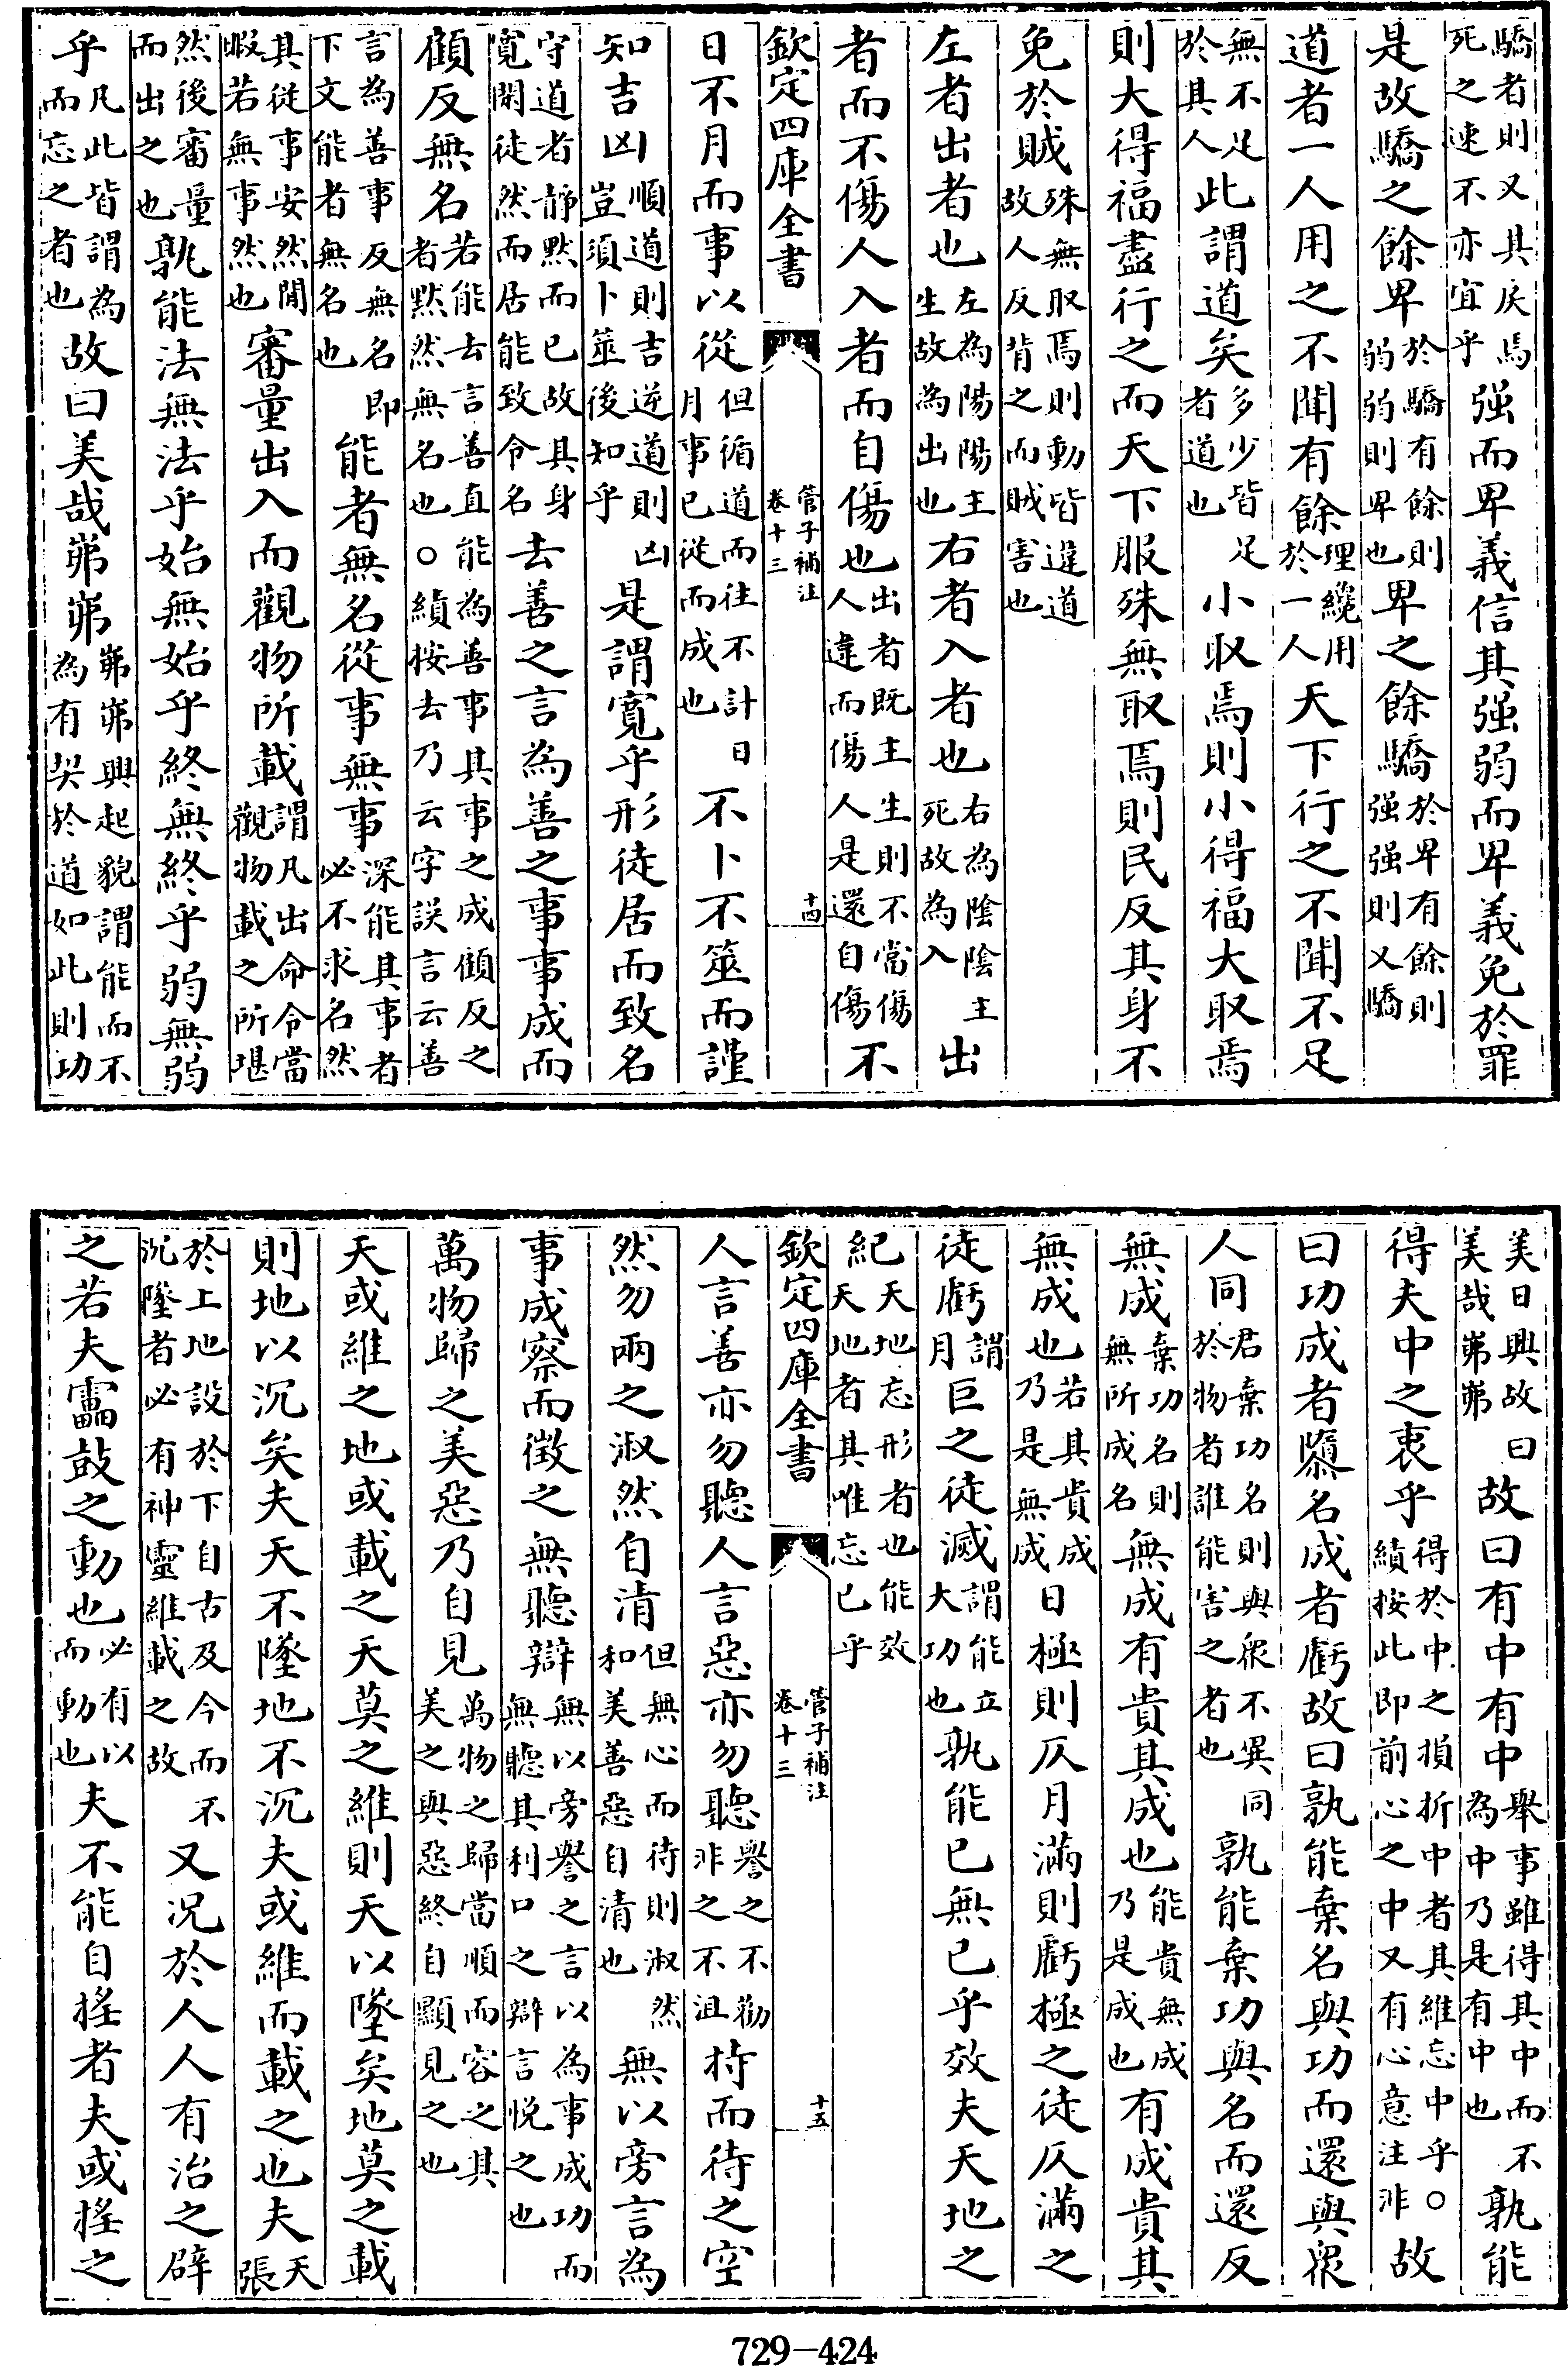 驕者則又其戾焉死之速不亦宜乎强而卑義信其强弱而卑義免於罪
是故驕之餘卑於驕有餘則弱弱則卑也卑之餘驕於卑有餘則强强則又驕
道者一人用之不聞有餘理纔用於一人天下行之不聞不足
無不足於其人此謂道矣多少皆足者道也小取焉則小得福大取焉
則大得福盡行之而天下服殊無取焉則民反其身不
免於賊殊無取焉則動皆違道故人反背之而賊害也
左者出者也左為陽陽主生故為出也右者入者也右為陰陰主死故為入出
者而不傷人入者而自傷也出者既主生則不當傷人違而傷人是還自傷不
欽定四庫全書 管子補注卷十三 十四
日不月而事以從但循道而往不計日月事已從而成也不卜不筮而謹
知吉凶順道則吉逆道則凶豈須卜筮後知乎是謂寬乎形徒居而致名
守道者靜默而已故其身寬閒徒然而居能致令名去善之言為善之事事成而
顧反無名若能去言善直能為善事其事之成顧反之者默然無名也○績按去乃云字誤言云善
言為善事反無名即下文能者無名也能者無名從事無事深能其事者必不求名然
其從事安然閒暇若無事然也審量出入而觀物所載謂凡出命令當觀物載之所堪
然後審量而出之也孰能法無法乎始無始乎終無終乎弱無弱
乎凡此皆謂為而忘之者也故曰美哉岪岪岪岪興起貌謂能而不為有契於道如此則功
美日興故曰美哉岪岪故曰有中有中舉事雖得其中而不為中乃是有中也孰能
得夫中之衷乎得於中之損折中者其維忘中乎○績按此即前心之中又有心意注非故
曰功成者隳名成者虧故曰孰能棄名與功而還與衆
人同君棄功名則與衆不異同於物者誰能害之者也孰能棄功與名而還反
無成棄功名則無所成名無成有貴其成也能貴無成乃是成也有成貴其
無成也若其貴成乃是無成日極則仄月滿則虧極之徒仄滿之
徒虧謂月巨之徒滅謂能立大功也孰能已無已乎效夫天地之
紀天地忘形者也能效天地者其唯忘已乎
欽定四庫全書 管子補注卷十三 十五
人言善亦勿聽人言惡亦勿聽譽之不勸非之不沮持而待之空
然勿兩之淑然自清但無心而待則淑然和美善惡自清也無以旁言為
事成察而徴之無聽辯無以旁譽之言以為事成功而無聽其利口之辯言悅之也
萬物歸之美惡乃自見萬物之歸當順而容之其美之與惡終自顯見之也
天或維之地或載之天莫之維則天以墜矣地莫之載
則地以沉矣夫天不墜地不沉夫或維而載之也夫天張
於上地設於下自古及今而不沉墜者必有神靈維載之故又况於人人有治之辟
之若夫靁鼓之動也必有以而動也夫不能自搖者夫或搖之
729-424